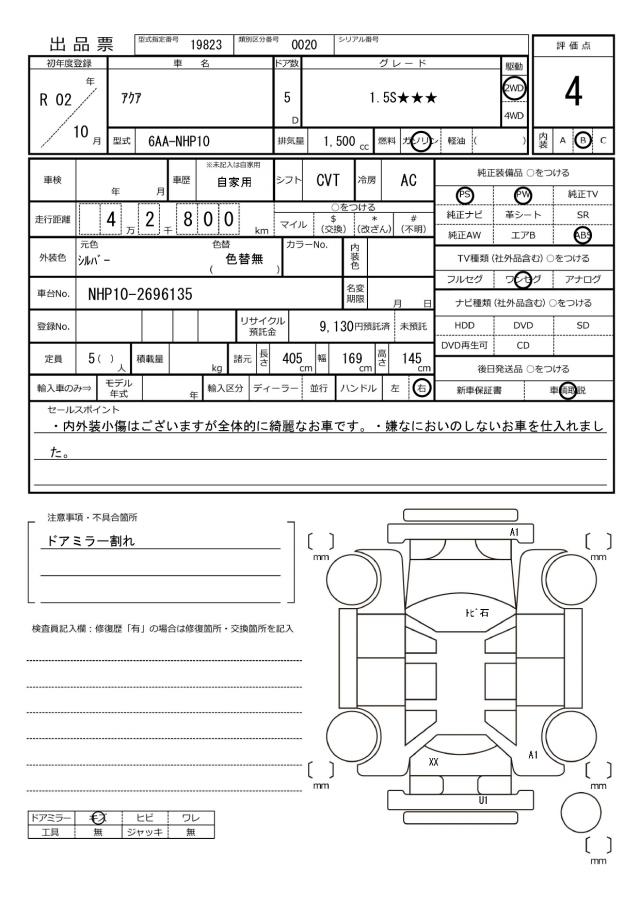 出品票 型式指定番号 19823 類別区分番号 0020 シリアル番号
初年度登録 車名 ドア数 グレード 駆動 評価点
R 02 年 10 月 アクア 5 D 1.5S★★★ 2WD 4WD 4
型式 6AA-NHP10 排気量 1,500 cc 燃料 ガソリン 軽油 ( ) 内装 A B C
車検 年 月 車歴 ※未記入は自家用 自家用 シフト CVT 冷房 AC
走行距離 4 万 2 千 8 0 0 km ○をつける マイル $ (交換) * (改ざん) # (不明)
外装色 元色 シルバー 色替 ( 色替無 ) カラーNo. 内装色
車台No. NHP10-2696135 名変期限 月 日
登録No. リサイクル預託金 9,130円預託済 未預託
定員 5 ( ) 人 積載量 kg 諸元 長さ 405 cm 幅 169 cm 高さ 145 cm
輸入車のみ⇒ モデル年式 年 輸入区分 ディーラー 並行 ハンドル 左 右
純正装備品 ○をつける
PS PW 純正TV
純正ナビ 革シート SR
純正AW エアB ABS
TV種類 (社外品含む) ○をつける
フルセグ ワンセグ アナログ
ナビ種類 (社外品含む) ○をつける
HDD DVD SD
DVD再生可 CD
後日発送品 ○をつける
新車保証書 車輌取説
セールスポイント
・内外装小傷はございますが全体的に綺麗なお車です。・嫌なにおいのしないお車を仕入れまし
た。
注意事項・不具合箇所
ドアミラー割れ
検査員記入欄：修復歴「有」の場合は修復箇所・交換箇所を記入
ドアミラー キズ ヒビ ワレ
工具 無 ジャッキ 無
A1
[ ] mm [ ] mm
トビ石
A1
XX
[ ] mm [ ] mm
U1
[ ] mm